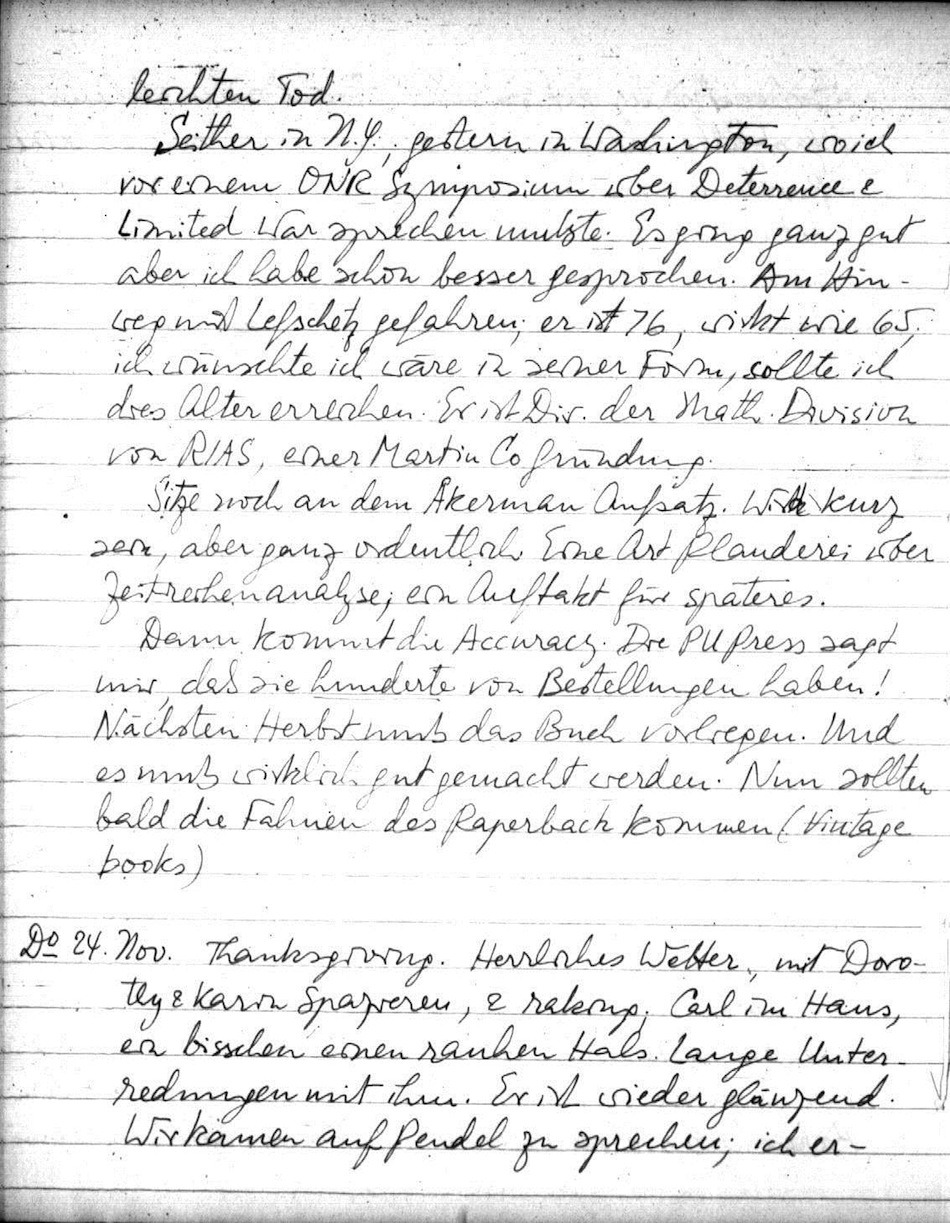 leichten Tod.
Seither in N.Y., gestern in Washington, wo ich
vor einem ONR Symposium über Deterrence &
Limited War sprechen mußte. Es ging ganz gut
aber ich habe schon besser gesprochen. Am Hin-
weg mit Lefschetz gefahren; er ist 76, wirkt wie 65,
ich wünschte ich wäre in seiner Form, sollte ich
dies Alter erreichen. Er ist Dir. der Math. Division
von RIAS, einer Martin Co Gründung.
Sitze noch an dem Åkerman Aufsatz. Wird kurz
sein, aber ganz ordentlich. Eine Art Plauderei über
Zeitreihenanalyse; ein Auftakt für späteres.
Dann kommt die Accuracy. Die PUPress sagt
mir, daß sie hunderte von Bestellungen haben!
Nächsten Herbst muß das Buch vorliegen. Und
es muß wirklich gut gemacht werden. Nun sollten
bald die Fahnen des Paperback kommen (Vintage
books)
Do 24. Nov. Thanksgiving. Herrliches Wetter, mit Doro-
thy & Karin Spazieren, & raking. Carl im Haus,
ein bisschen einen rauhen Hals. Lange Unter-
redungen mit ihm. Er ist wieder glänzend.
Wir kamen auf Pendel zu sprechen; ich er-